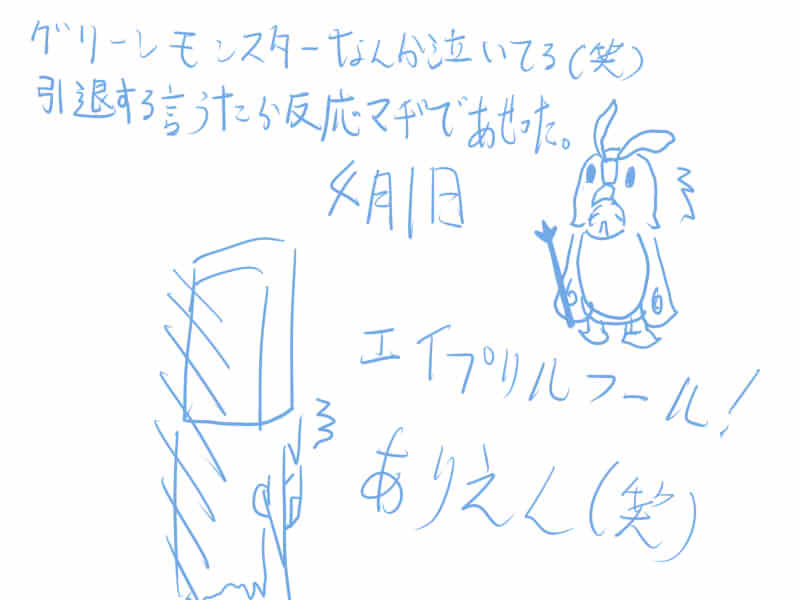 グリーンモンスターなんか泣いてる(笑)
引退する言うたか反応マギであせった。
4月1日
エイプリルフール!
ありえん(笑)